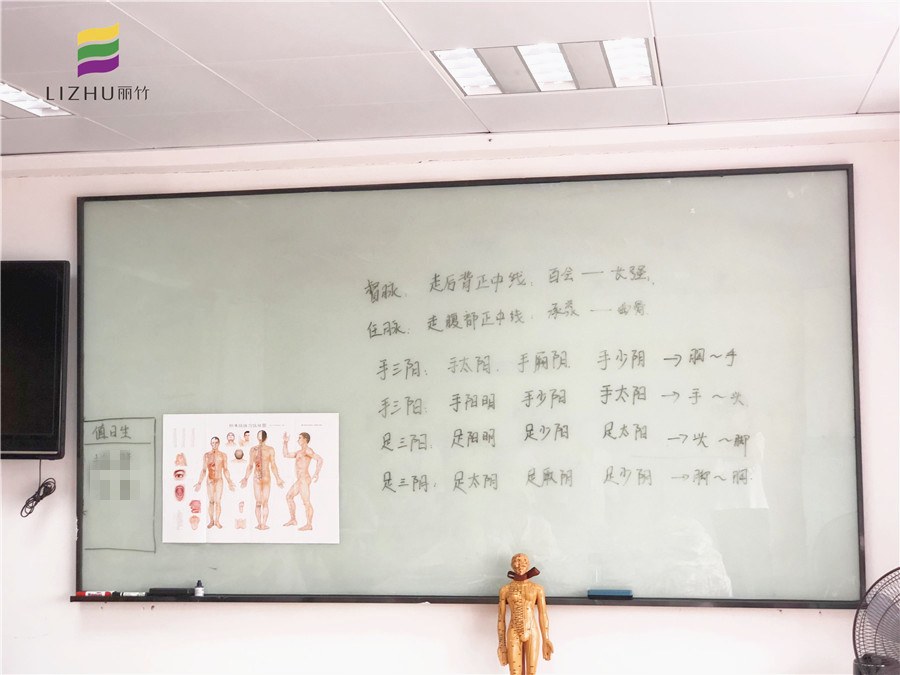 LIZHU丽竹
督脉: 走后背正中线, 百会 — 长强.
任脉: 走腹部正中线, 承浆 —
手三阳: 手太阳. 手厥阴 手少阴 → 胸~手
手三阳: 手阳明 手少阳 手太阳 → 手~头
足三阳: 足阳明 足少阳 足太阳 → 头~脚
足三阴: 足太阴 足厥阴 足少阴 → 脚~胸.
值日生